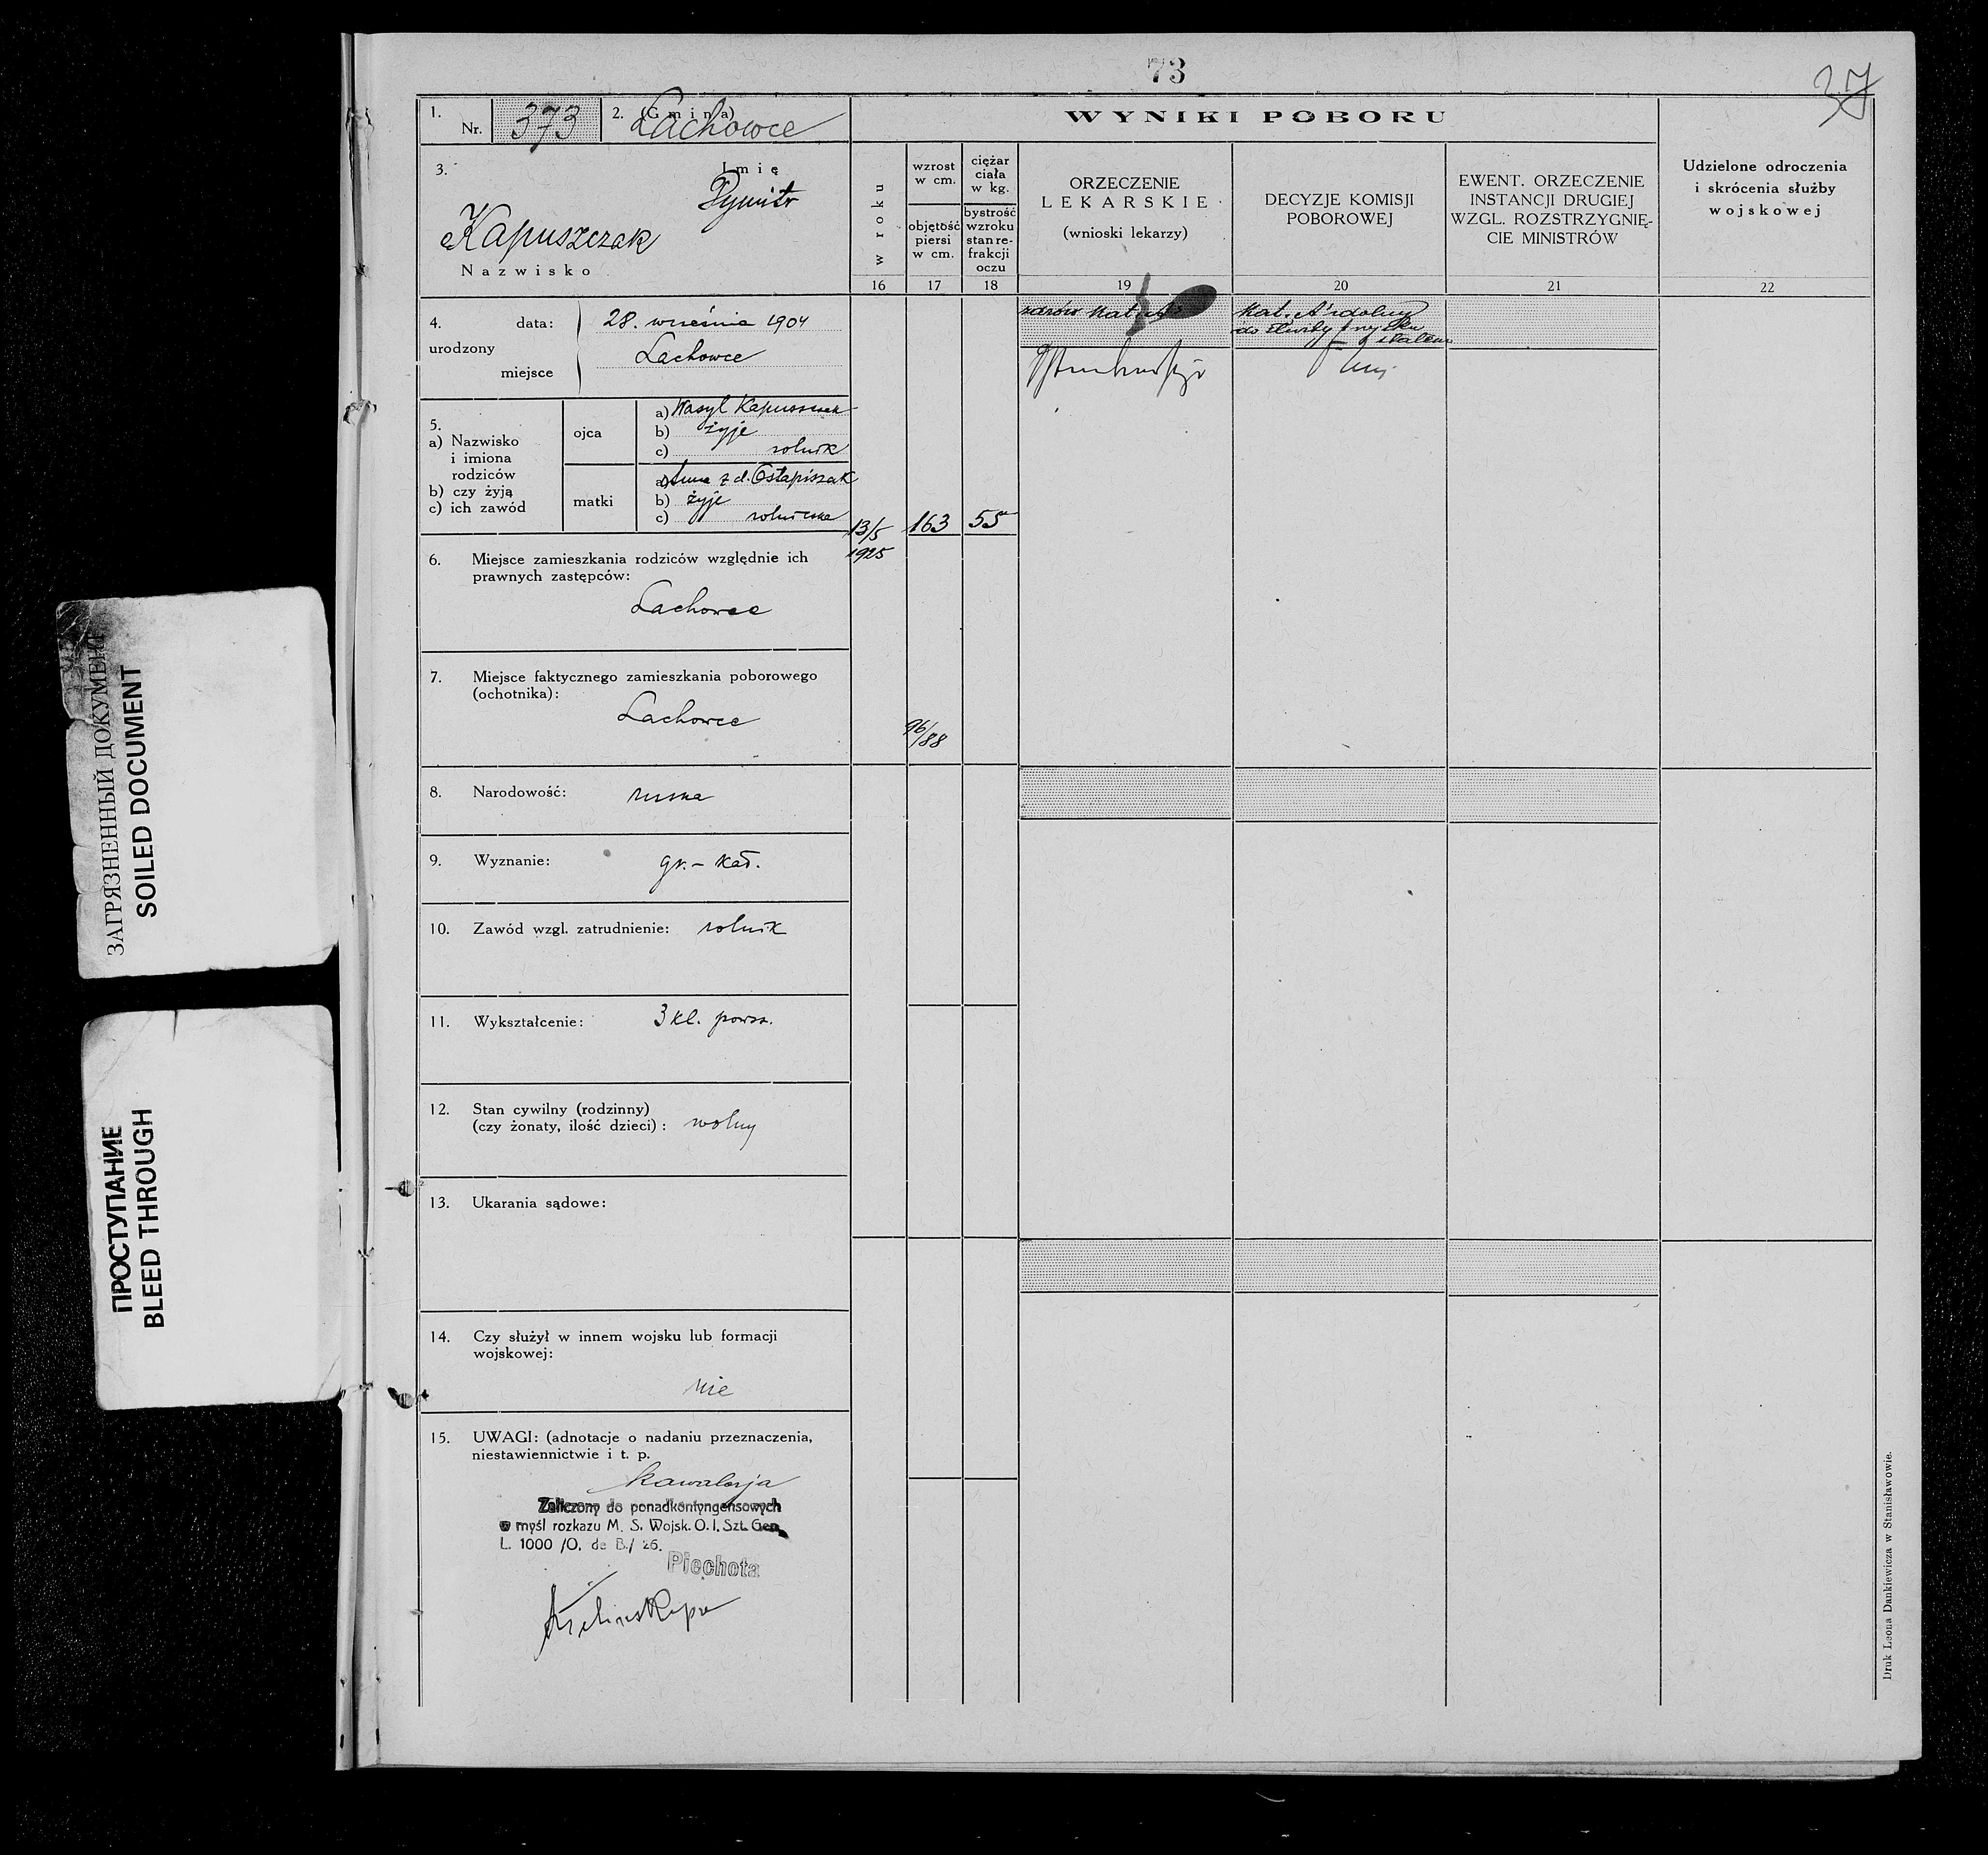 73
37
1. Nr. 373
2. (Gmina) Lachowce
WYNIKI POBORU
3. Imię
Dymitr
Kapuszczak
Nazwisko
w roku
wzrost w cm.
objętość piersi w cm.
ciężar ciała w kg.
bystrość wzroku stan re- frakcji oczu
ORZECZENIE
LEKARSKIE
(wnioski lekarzy)
DECYZJE KOMISJI
POBOROWEJ
EWENT. ORZECZENIE
INSTANCJI DRUGIEJ
WZGL. ROZSTRZYGNIĘ-
CIE MINISTRÓW
Udzielone odroczenia
i skrócenia służby
wojskowej
16 17 18 19 20 21 22
4. urodzony
data: 28. września 1904
miejsce Lachowce
zdrów kat. A
kat. A zdolny
do służby
5.
a) Nazwisko
i imiona
rodziców
b) czy żyją
c) ich zawód
ojca
a) Wasyl Kapuszczak
b) żyje
c) rolnik
matki
a) Anna z d. Ostapiszak
b) żyje
c) rolniczka
13/5
1925
163
55
6. Miejsce zamieszkania rodziców względnie ich
prawnych zastępców:
Lachowce
7. Miejsce faktycznego zamieszkania poborowego
(ochotnika):
Lachowce
96/88
8. Narodowość: ruska
9. Wyznanie: gr.- kat.
10. Zawód wzgl. zatrudnienie: rolnik
11. Wykształcenie: 3 kl. powsz.
12. Stan cywilny (rodzinny)
(czy żonaty, ilość dzieci): wolny
13. Ukarania sądowe:
14. Czy służył w innem wojsku lub formacji
wojskowej:
nie
15. UWAGI: (adnotacje o nadaniu przeznaczenia,
niestawiennictwie i t. p.
Kawalerja
Zaliczony do ponadkontyngensowych
w myśl rozkazu M. S. Wojsk. O. I. Szt. Gen.
L. 1000 /O. de B./ 26.
Piechota
Druk Leona Dankiewicza w Stanisławowie.
ЗАГРЯЗНЕННЫЙ ДОКУМЕНТ
SOILED DOCUMENT
ПРОСТУПАНИЕ
BLEED THROUGH